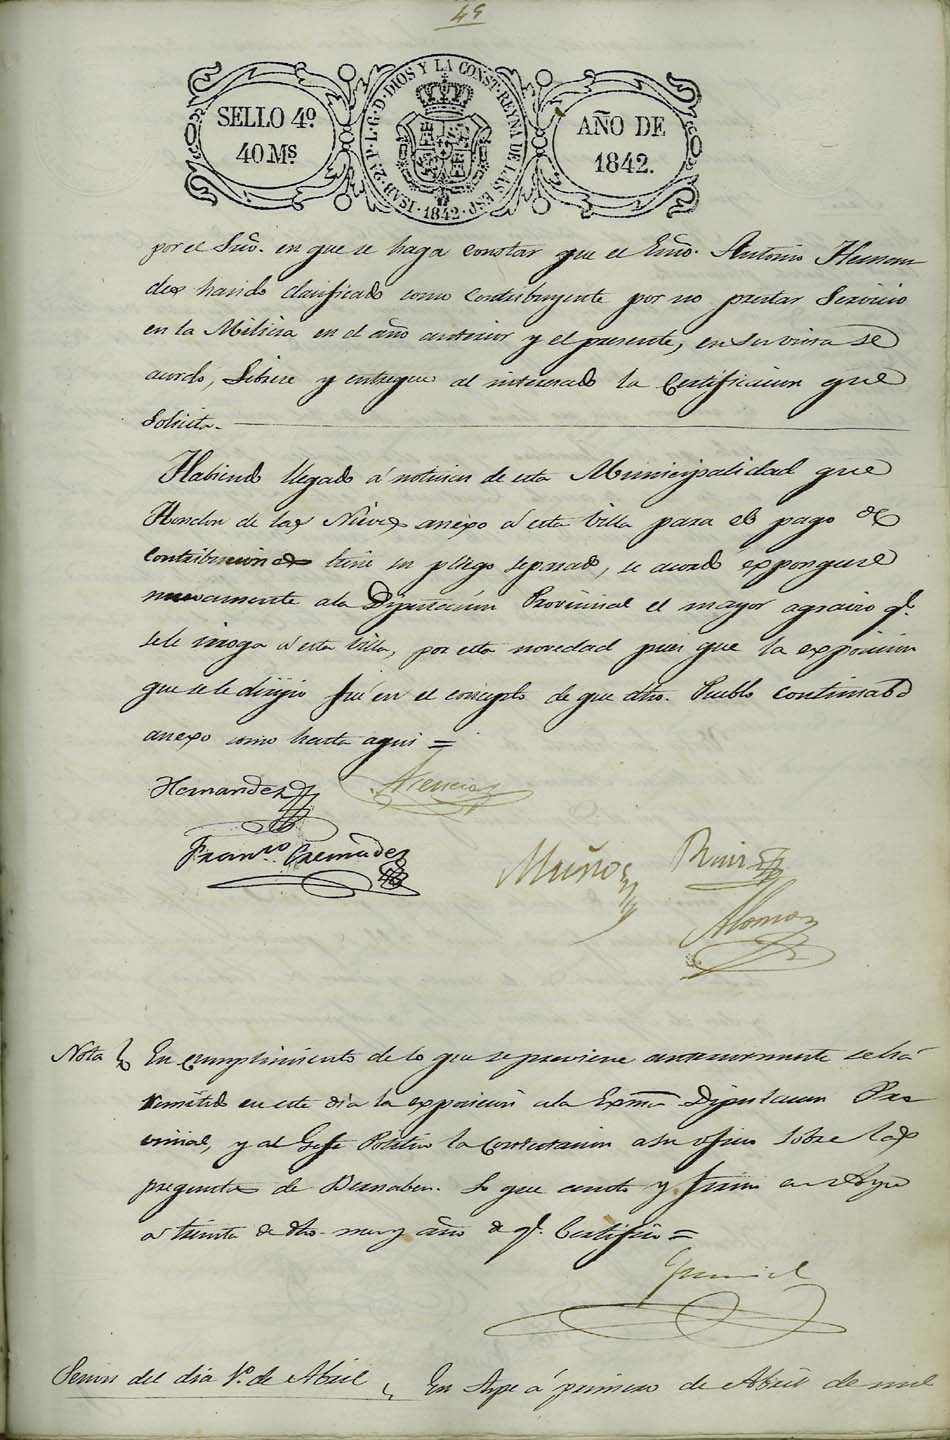 49
SELLO 4º
40 Mˢ
ISAB. 2ª P. L. G. D. DIOS Y LA CONST. REYNA DE LAS ESP. 1842
AÑO DE
1842.
por el Srio. en que se haga constar que el Exmo. Antonio Hernan
dez ha sido clasificado como contribuyente por no prestar Servicio
en la Milicia en el año anterior y el presente, en su vista se
acordó, Libere y entregue al interesado la Certificacion que
Solicita.
Habiendo llegado á noticia de esta Municipalidad que
Hondon de las Nieves anexo á esta Villa para el pago de
contribuciones tiene su pliego separado, se acordó exponerse
nuevamente a la Diputacion Provincial el mayor agravio q.ᵉ
se le irroga á esta Villa, por esta novedad pues que la exposicion
que se le dirijio fué en el concepto de que dho. Pueblo continuaba
anexo como hasta aqui =
Hernandez Asencio
Franᶜº Cremades
Muños Ruiz
Alonso
Nota En cumplimiento de lo que se previene anteriormente se há
remitido en este dia la exposicion a la Exma Diputacion Pro
vincial, y al Gefe Politico la contestacion a su oficio sobre las
preguntas de Bernabeu. Lo que anoto y firmo en Aspe
a treinta de dho. mes y año de q.ᵉ Certifico =
Sesion del dia 1.º de Abril En Aspe á primero de Abril de mil